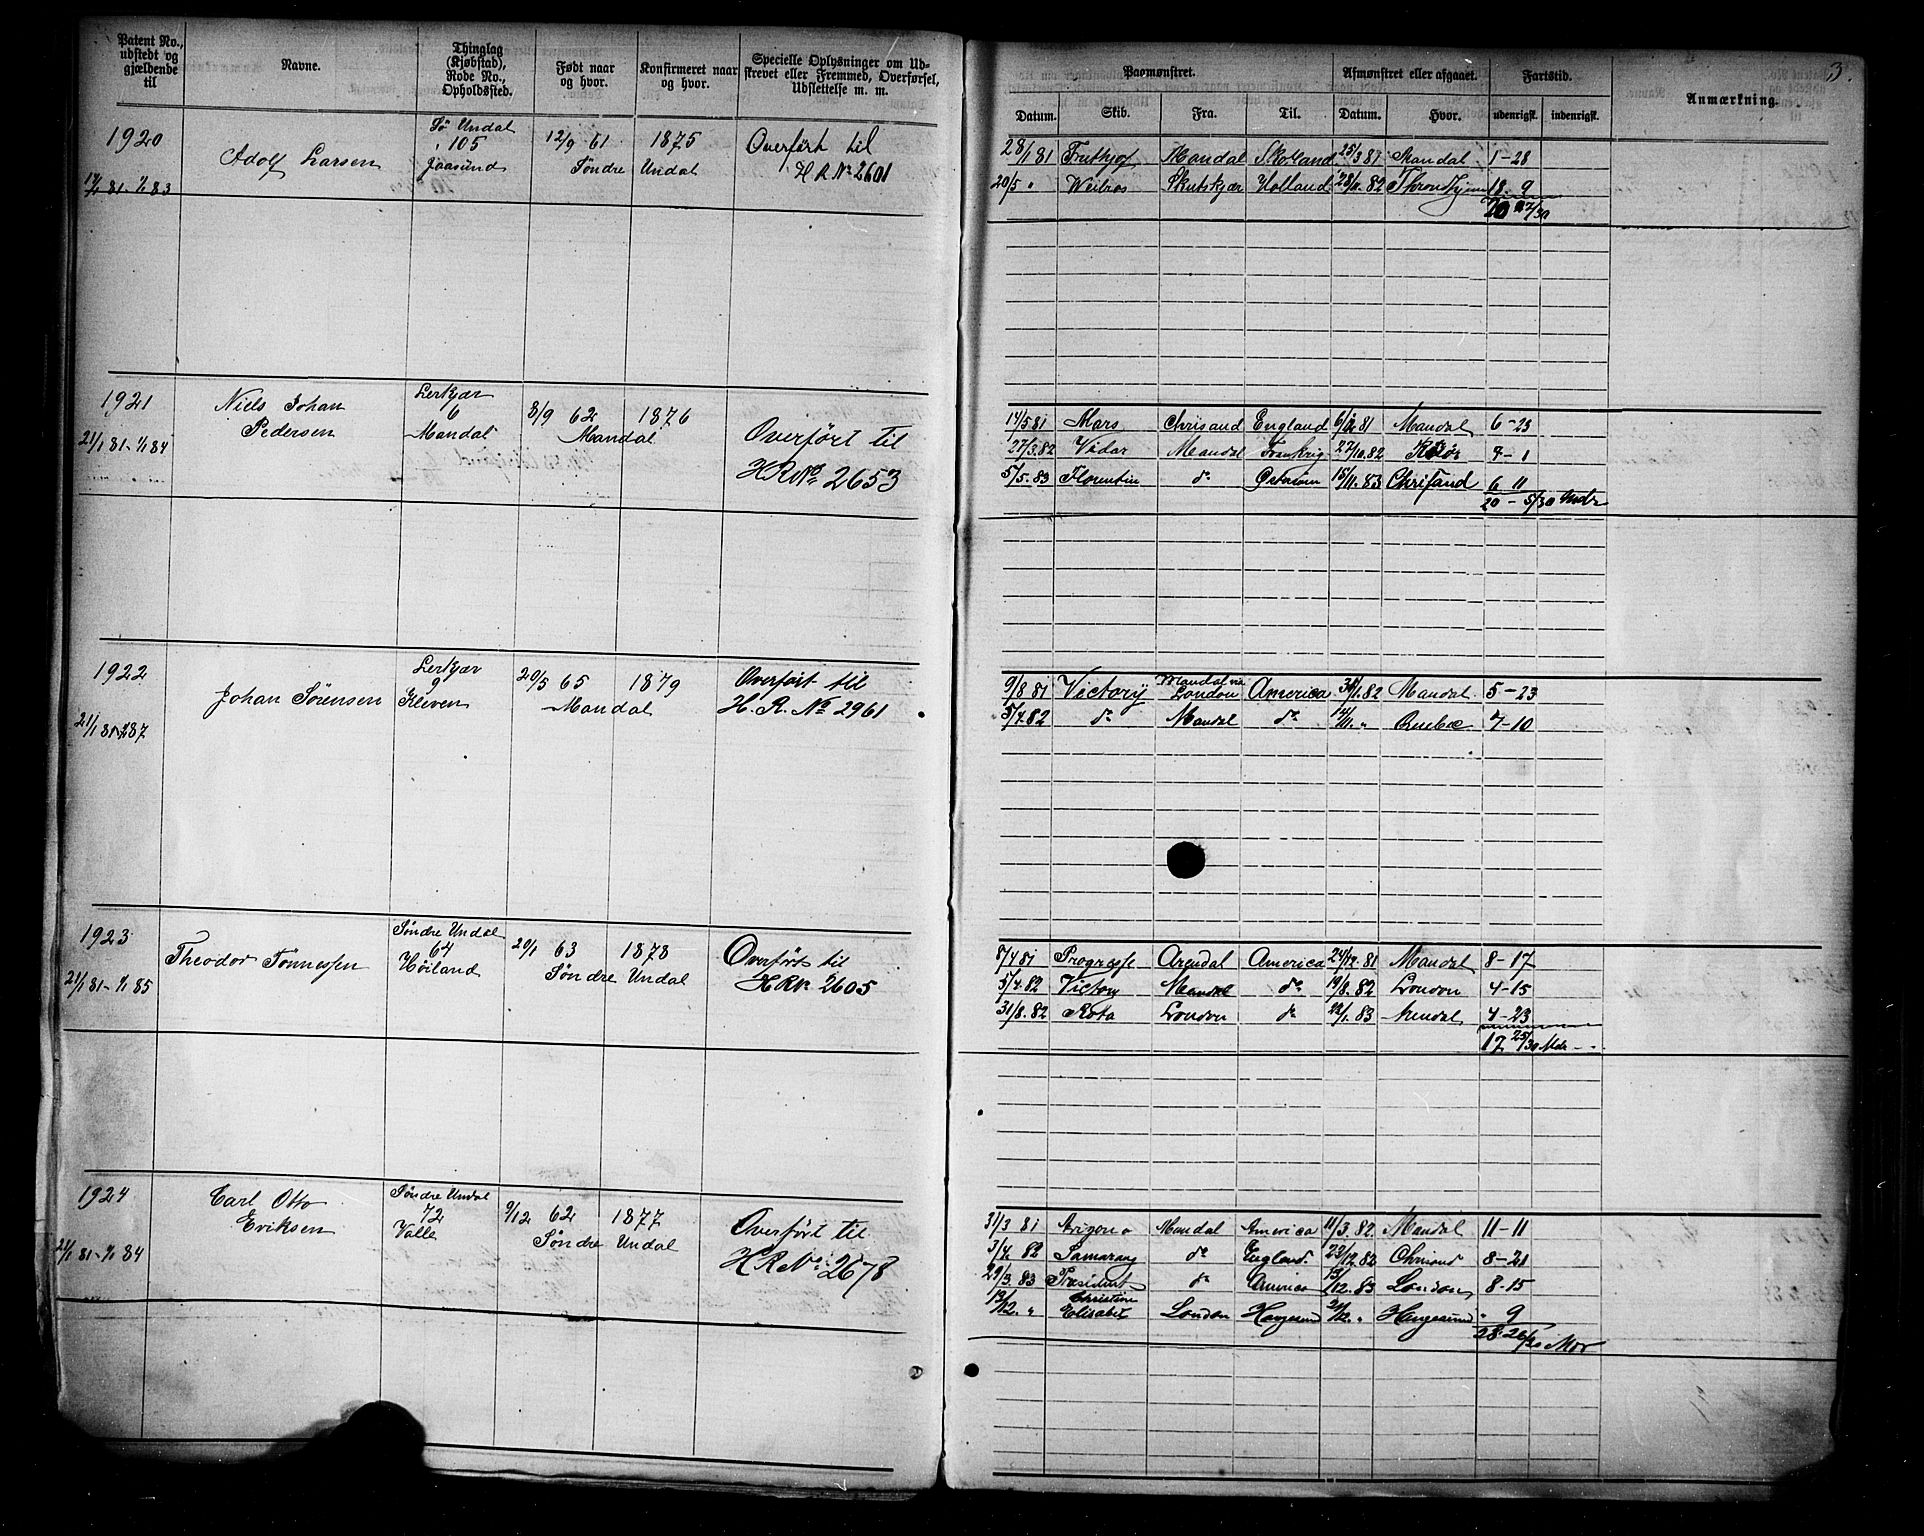 Patent No., udstedt og gjældende til
Navne.
Thinglag (Kjøbstad), Rode No., Opholdssted.
Født naar og hvor.
Konfirmeret naar og hvor.
Specielle Oplysninger om Udskrevet eller Fremmed, Overførsel, Udslettelse m. m.
Paamønstret.
Afmønstret eller afgaaet.
Fartstid.
Anmærkning.
3.
Datum. Skib. Fra. Til. Datum. Hvor. udenrigsk. indenrigsk.
1920
Adolf Larsen
Sø Undal
105
Jaasund
12/9 61
Søndre Undal
1875
Overført til
H R No 2601
28/1 81 Mandal Skotland 25/3 81 Mandal 1-28
20/5 " Skutskjær Holland 82 18-9
20 27/30
1921
21/1 81-1/1 84
Niels Johan
Pedersen
Lerkjær
6
Mandal
8/9 62
Mandal
1876
Overført til
H R No 2653
14/5 81 Mars Chrisand England 81 Mandal 6-23
27/3.82 Vidar Mandal Frankrig 27/10.82 7-1
5/5.83 Florentin do 15/11.83 Chrisand 6 11
20-5/30 Mdr
1922
Johan Sørensen
Lerkjær
9
Kleven
20/5 65
Mandal
1879
Overført til
H. R. No 2961
9/8 81 Victory Mandal via London America 82 Mandal 5-23
5/4.82 do Mandal do 14/11. " Quebec 7-10
1923
21/1 81-1/1 85
Theodor Tønnessen
Søndre Undal
64
Høiland
20/1 63
Søndre Undal
1878
Overført til
H R No 2605
7/4 81 Progresse Arendal America 24/12.81 Mandal 8-17
5/4.82 Victory Mandal do 19/8.82 London 4-15
31/8.82 Rota London do 83 4-23
17 25/30 Mdr
1924
21/1 81-1/1 84
Carl Otto
Eriksen
Søndre Undal
72
Valle
9/12 62
Søndre Undal
1877
Overført til
H R No 2678
31/3 81 Mandal America 11/3.82 Mandal 11-11
3/4. 82 Samarang do England. 22/12.82 Chrisand 8-21
29/3.83 Præsident do America 13/12.83 London 8-15
13/12. " Christine Elisabet London Haugesund " Haugesund " 9
28-26/30 Mdr